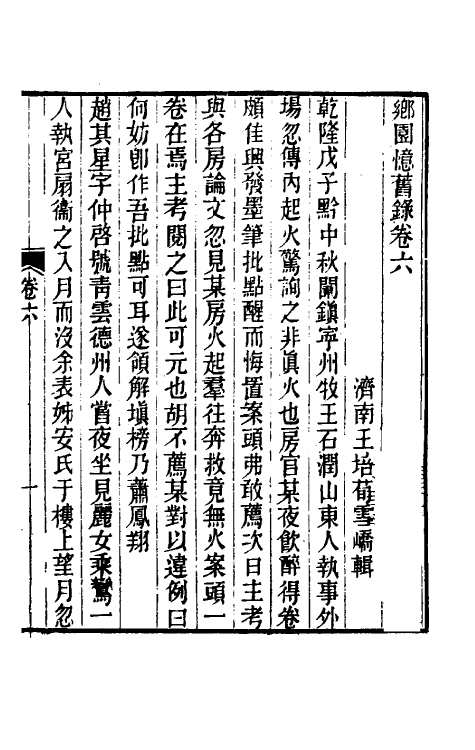 鄉園憶舊錄卷六
濟南王培荀雪嶠輯
乾隆戊子黔中秋闈鎮寧州牧王石潤山東人執事外
場忽傳內起火驚詢之非眞火也房官某夜飲醉得卷
頗佳興發墨筆批點醒而悔置案頭弗敢薦次日主考
與各房論文忽見某房火起羣往奔救竟無火案頭一
卷在焉主考閱之曰此可元也胡不薦某對以違例曰
何妨卽作吾批點可耳遂領解塡榜乃蕭鳳翔
趙其星字仲啓號靑雲德州人嘗夜坐見麗女乘鸞一
人執宮扇衞之入月而沒余表姊安氏于樓上望月忽
卷六
一